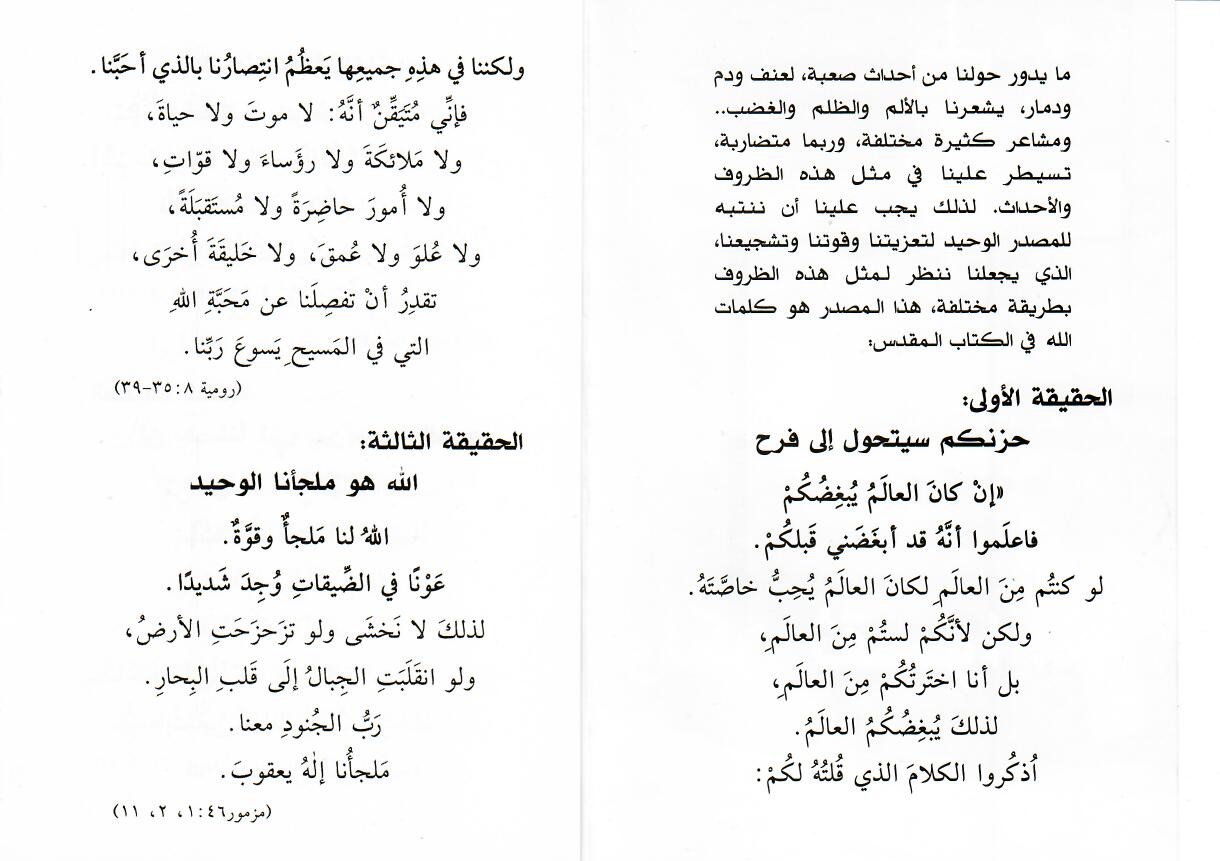 ما يدور حولنا من أحداث صعبة، لعنف ودم
ودمار، يشعرنا بالألم والظلم والغضب..
ومشاعر كثيرة مختلفة، وربما متضاربة،
تسيطر علينا في مثل هذه الظروف
والأحداث. لذلك يجب علينا أن ننتبه
للمصدر الوحيد لتعزيتنا وقوتنا وتشجيعنا،
الذي يجعلنا ننظر لمثل هذه الظروف
بطريقة مختلفة، هذا المصدر هو كلمات
الله في الكتاب المقدس:
الحقيقة الأولى:
حزنكم سيتحول إلى فرح
«إنْ كانَ العالَمُ يُبغِضُكُمْ
فاعلَموا أنَّهُ قد أبغَضَني قَبلكُمْ.
لو كنتُم مِنَ العالَمِ لكانَ العالَمُ يُحِبُّ خاصَّتَهُ.
ولكن لأنَّكُمْ لستُمْ مِنَ العالَمِ،
بل أنا اختَرتُكُمْ مِنَ العالَمِ،
لذلكَ يُبغِضُكُمُ العالَمُ.
اُذكُروا الكلامَ الذي قُلتُهُ لكُمْ:
ولكننا في هذِهِ جميعِها يَعظُمُ انتِصارُنا بالذي أحَبَّنا.
فإنِّي مُتَيَقِّنٌ أنَّهُ: لا موتَ ولا حياةَ،
ولا مَلائكَةَ ولا رؤَساءَ ولا قوّاتِ،
ولا أُمورَ حاضِرَةً ولا مُستَقبَلَةً،
ولا عُلوَ ولا عُمقَ، ولا خَليقَةَ أُخرَى،
تقدِرُ أنْ تفصِلَنا عن مَحَبَّةِ اللهِ
التي في المَسيحِ يَسوعَ رَبِّنا.
(رومية ٨:‏٣٥-٣٩)
الحقيقة الثالثة:
الله هو ملجأنا الوحيد
اللهُ لنا مَلجأٌ وقوَّةٌ.
عَوْنًا في الضِّيقاتِ وُجِدَ شَديدًا.
لذلكَ لا نَخشَى ولو تزَحزَحَتِ الأرضُ،
ولو انقَلَبَتِ الجِبالُ إلَى قَلبِ البِحارِ.
رَبُّ الجُنودِ معنا.
مَلجأُنا إلٰهُ يعقوبَ.
(مزمور٤٦:‏١، ٢، ١١)